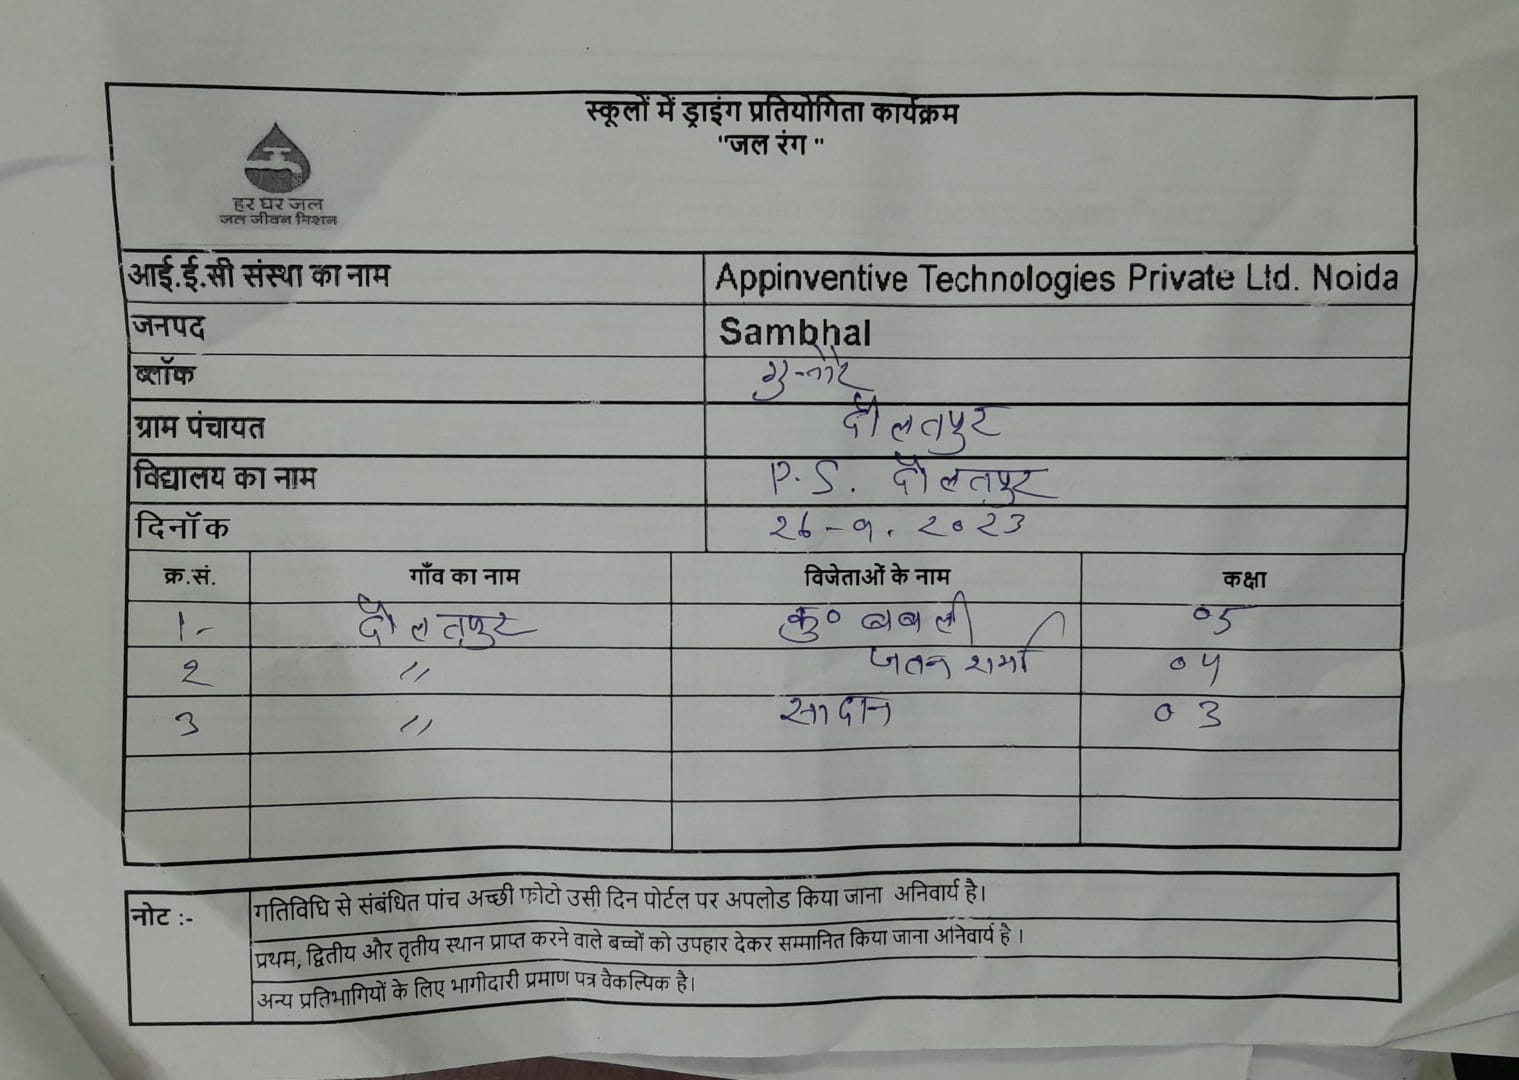 स्कूलों में ड्राइंग प्रतियोगिता कार्यक्रम
"जल रंग "
हर घर जल
जल जीवन मिशन
आई.ई.सी संस्था का नाम Appinventive Technologies Private Ltd. Noida
जनपद Sambhal
ब्लॉक गुन्नौर
ग्राम पंचायत दौलतपुर
विद्यालय का नाम P.S. दौलतपुर
दिनॉक 26-9.2023
क्र.सं. गाँव का नाम विजेताओं के नाम कक्षा
1- दौलतपुर कु० बबली 05
2 〃 जतन शर्मा ०५
3 〃 सादान 03
नोट :- गतिविधि से संबंधित पांच अच्छी फोटो उसी दिन पोर्टल पर अपलोड किया जाना अनिवार्य है।
प्रथम, द्वितीय और तृतीय स्थान प्राप्त करने वाले बच्चों को उपहार देकर सम्मानित किया जाना अनिवार्य है ।
अन्य प्रतिभागियों के लिए भागीदारी प्रमाण पत्र वैकल्पिक है।